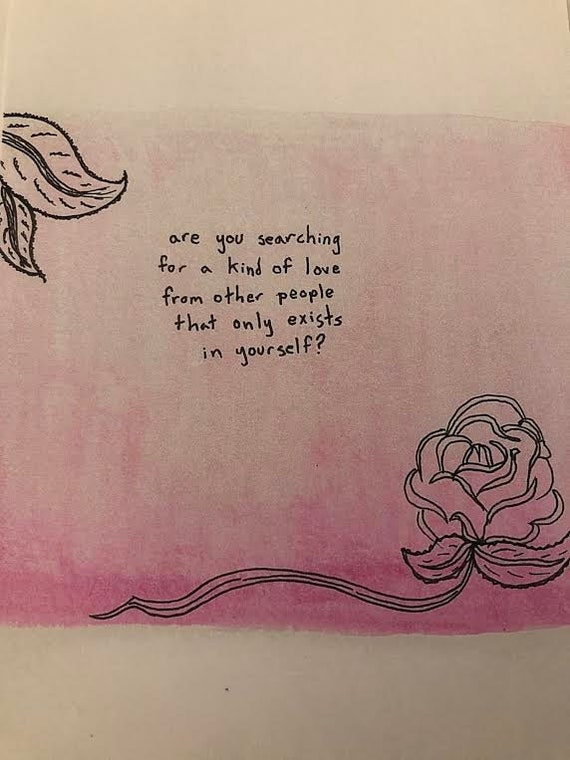 are you searching
for a kind of love
from other people
that only exists
in yourself?